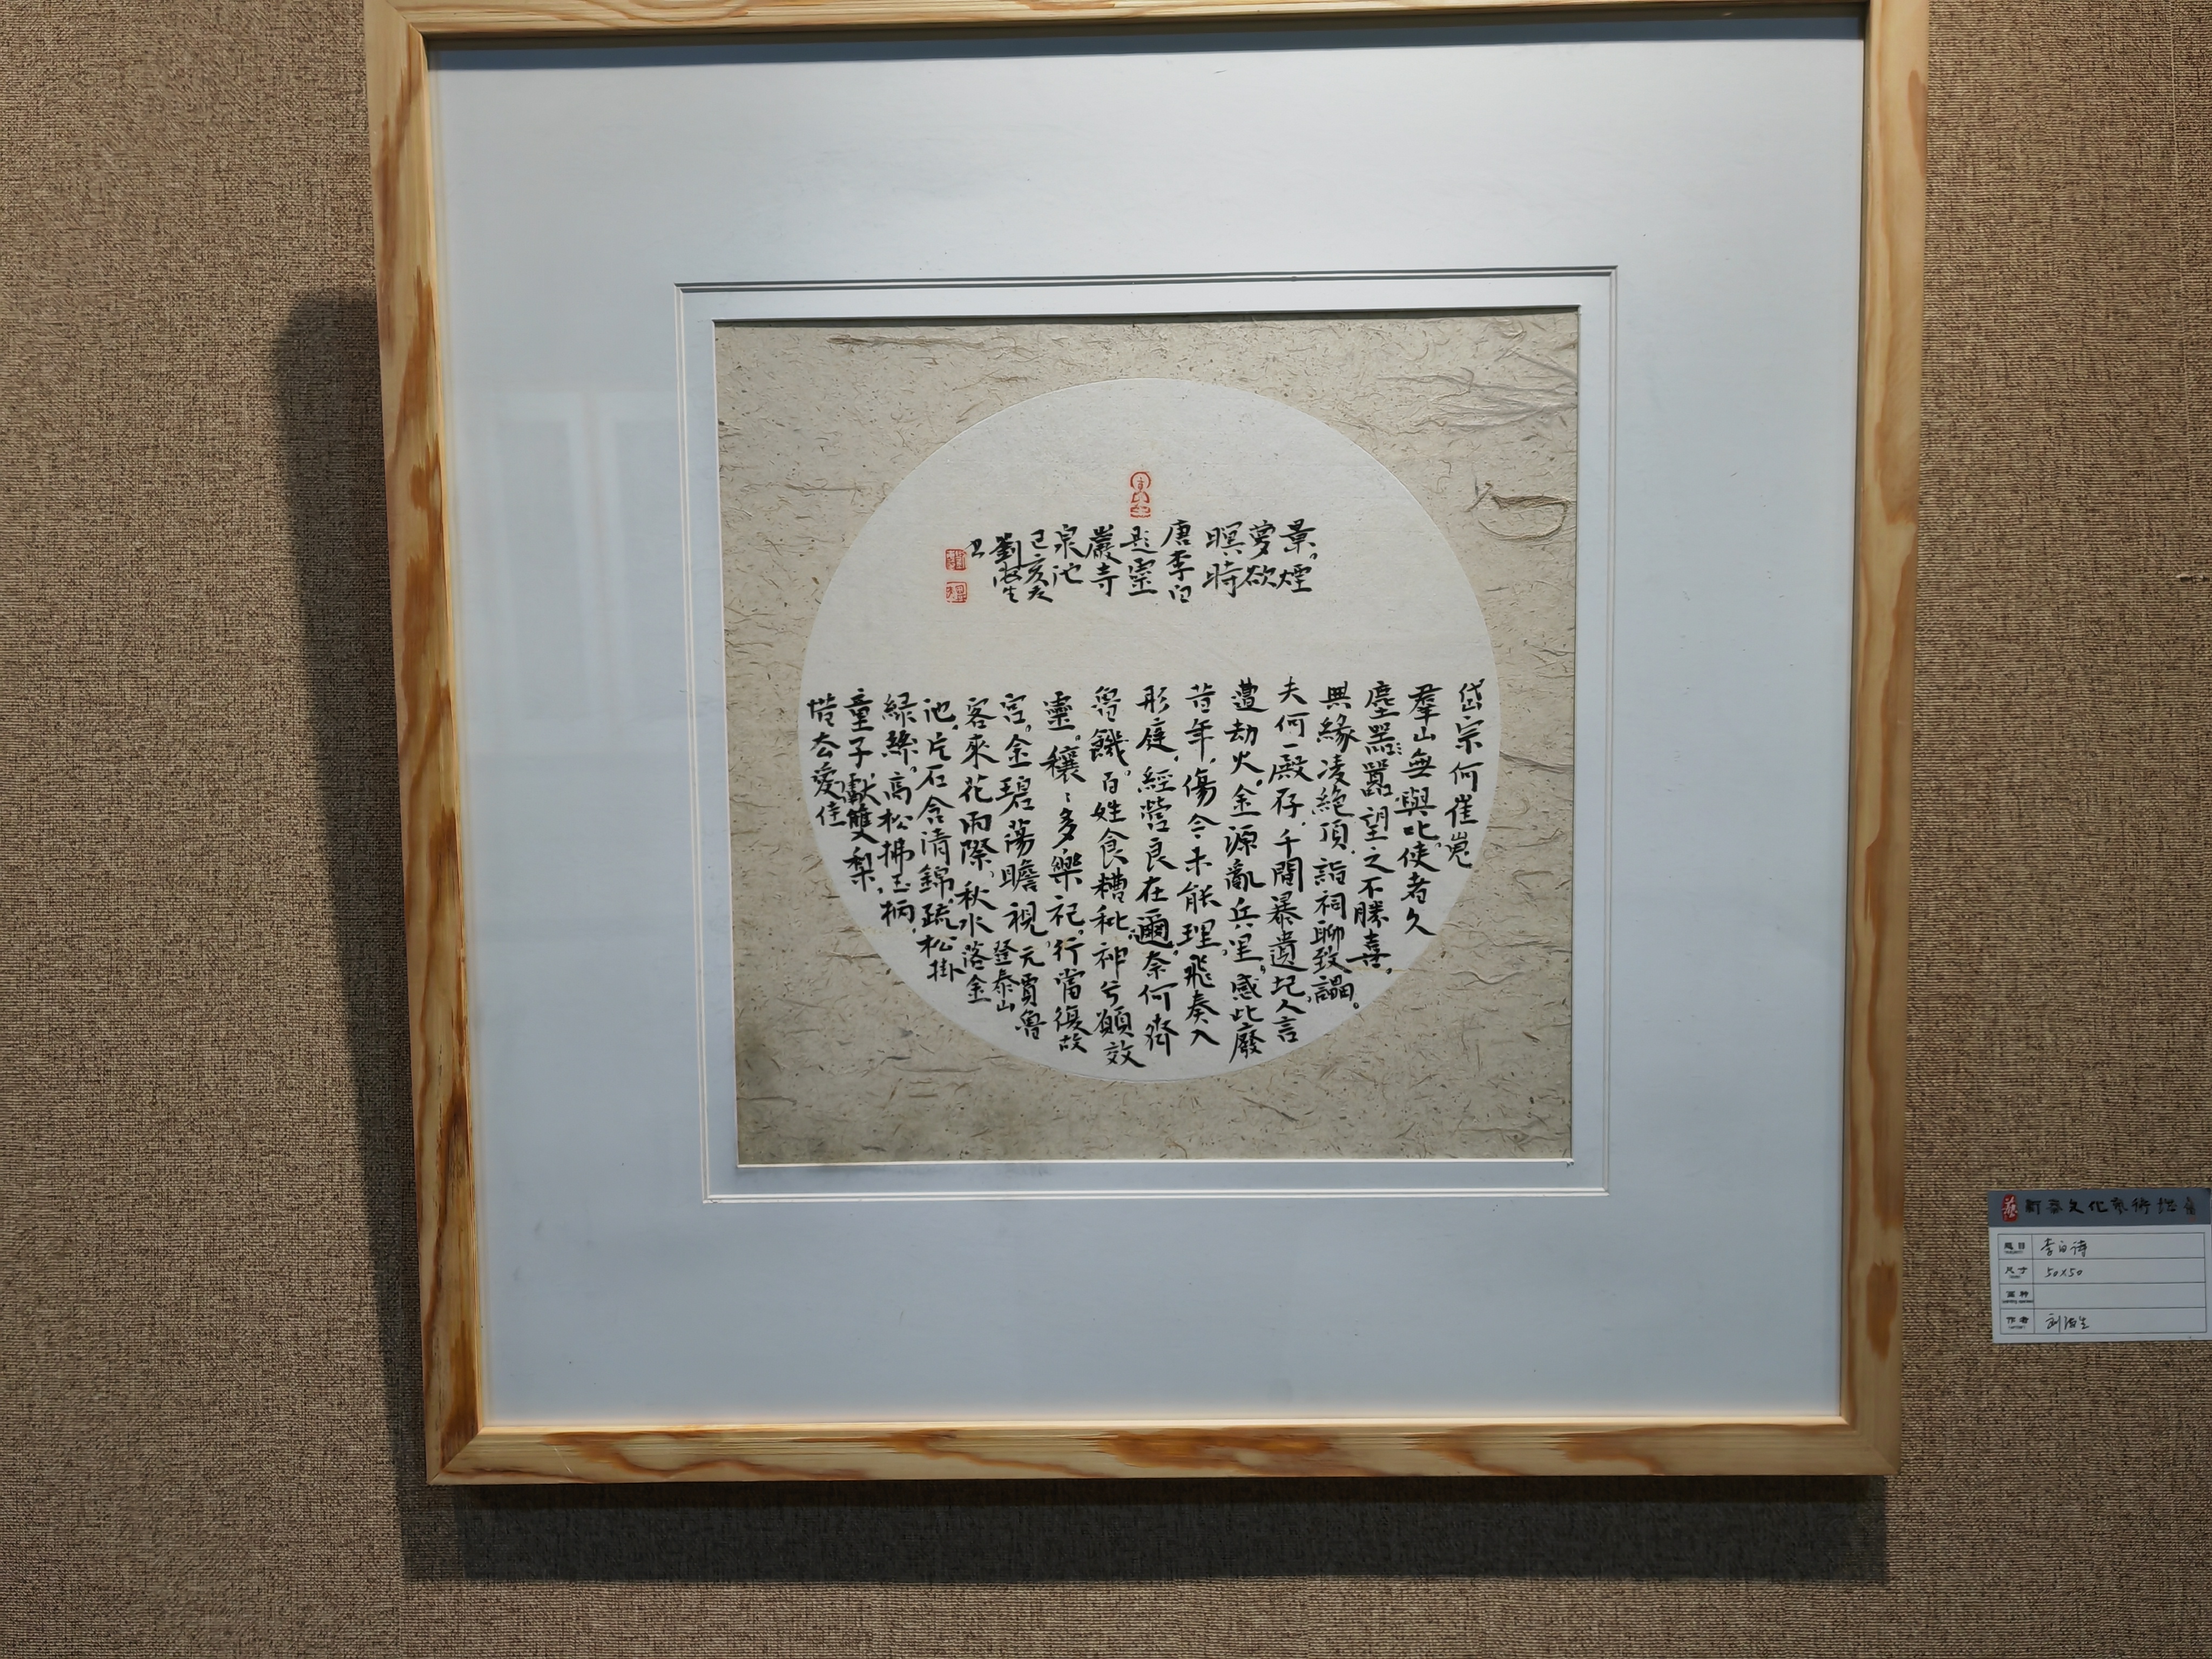 岱宗何崔嵬
羣山無與比使者久
塵嚣嚣望之不勝喜
興緣凌絶頂詣祠聊致
夫何一殿存千間暴遺圮人言
遭劫火金源亂兵里感此廢
昔年傷今未能理飛奏入
形庭經營良在邇奈何齊
魯饑百姓食糟秕神兮願效
靈穰々多樂祀行當復故
宮金碧蕩瞻視元賈魯
登泰山
客來花雨際秋水落金
池片石含清錦疏松掛
緑絲高松拂玉柄
童子獻雙梨
惜去愛佳
景煙
蘿欲
暝時
唐李白
題靈
巖寺
泉池
己亥夏
劉海生
书
新泰文化藝術
题目 李白诗
尺寸 50×50
画种
作者 刘海生